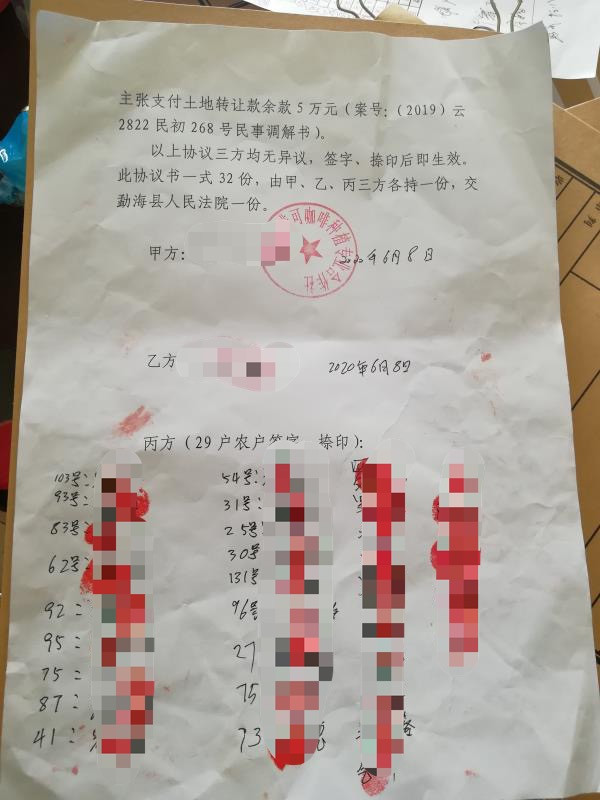 主张支付土地转让款余款 5 万元（案号：（2019）云
2822 民初 268 号民事调解书）。
以上协议三方均无异议，签字、捺印后即生效。
此协议书一式 32 份，由甲、乙、丙三方各持一份，交
勐海县人民法院一份。
可咖啡种植专业合作社
甲方： 2020年6月8日
乙方 2020年6月8日
丙方（29 户农户签字 捺印）：
103号： 54号：
93号： 31号：
83号： 25号：
62号： 30号
131号
92： 96号
95： 27
75： 75
87：
41： 73